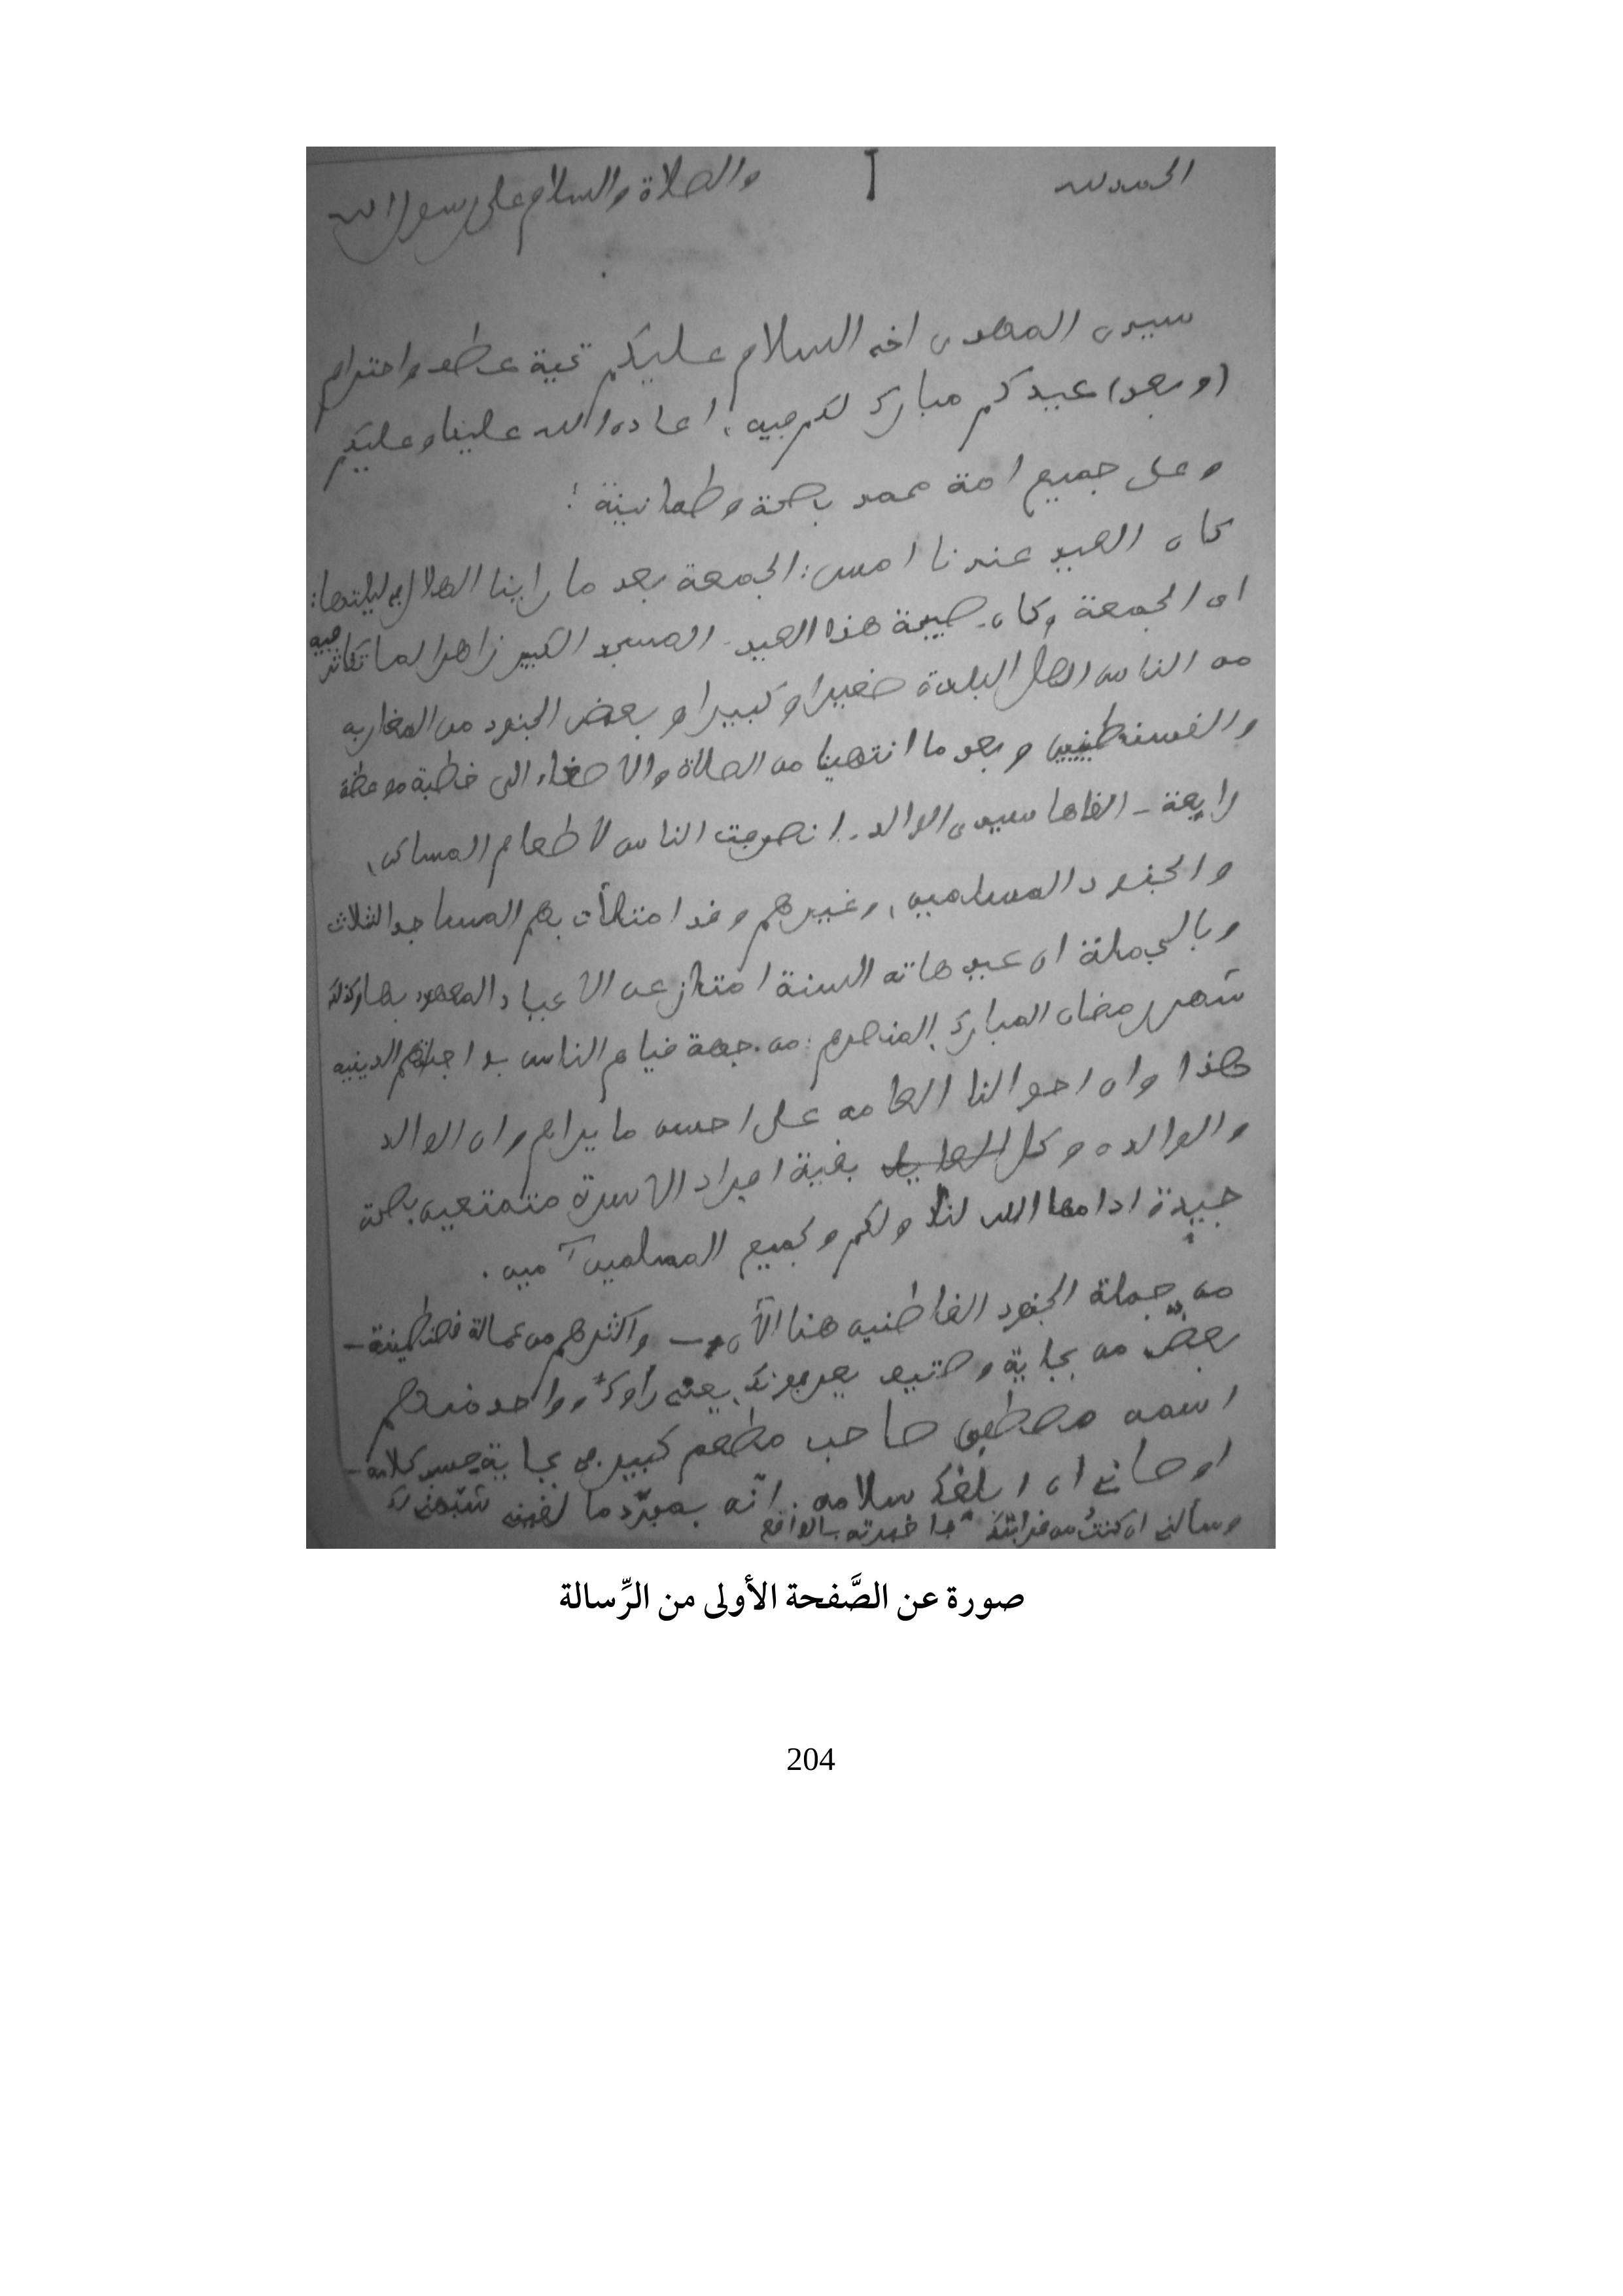 الحمد لله
I
والصلاة والسلام على رسول الله
سيدى المهدى اخى السلام عليكم تحية عطف واحترام
(وبعد) عيدكم مبارك لكم فيه، اعاده الله علينا وعليكم
وعلى جميع امة محمد بصحة وطمانينة!
كان العيد عندنا امس: الجمعة بعد ما راينا الهلال في ليلتها:
اى الجمعة وكان - صبيحة هذا العيد - المسجد الكبير زاهرا لما تكاثر فيه
من الناس اهل البلدة صغيرا وكبيرا و بعض الجنود من المغاربه
والقسنطنيين وبعد ما انتهينا من الصلاة والاصغاء الى خطبة موعظة
رايعة - القاها سيدى الوالد - انصرفت الناس لاطعام المساكن،
والجنود المسلمين، وغيرهم وقد امتلأت بهم المساجد الثلاث
وبالجملة ان عيد هاته السنة امتاز عن الاعياد المعهود بها وكذلك
شهر رمضان المبارك المنصرم: من جهة قيام الناس بواجباتهم الدينيه
هذا وان احوالنا العامه على احسن ما يرام وان الوالد
والوالده وكل بقية افراد الاسرة متمتعين بصحة
جيدة ادامها الله لنا ولكم ولجميع المسلمين آمين.
من جملة الجنود القاطنين هنا الآن - واكثرهم من عمالة قصنطينة -
بعض من بجاية وحتى يعرفونك يعنى راوك، وواحد منهم
اسمه مصطفى صاحب مطعم كبير فى بجاية حسب كلامه -
اوصانى ان ابلغك سلامه. انّه بمجرّد ما لقينى شبّهنى لك
وسالنى ان كنتُ من قرابتك فاخبرته بالواقع
صورة عن الصَّفحة الأولى من الرِّسالة
204